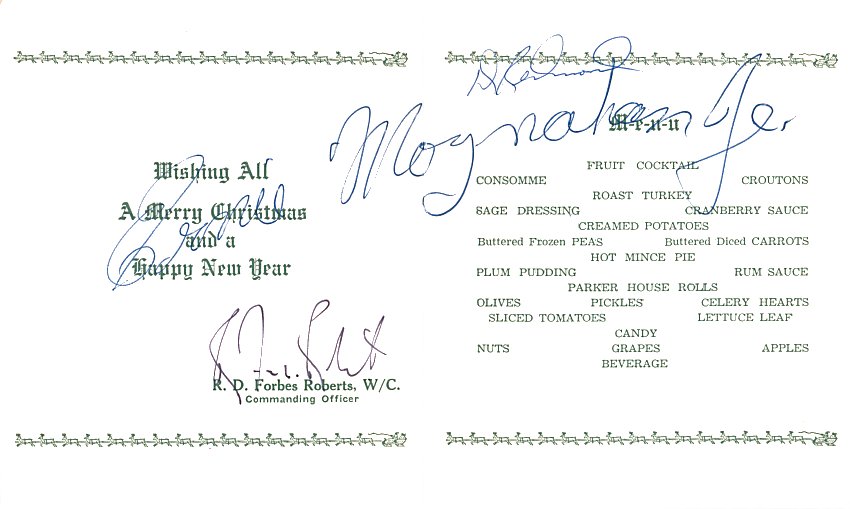 Wishing All
A Merry Christmas
and a
Happy New Year
R. D. Forbes Roberts, W/C.
Commanding Officer
M-e-n-u
FRUIT COCKTAIL
CONSOMME CROUTONS
ROAST TURKEY
SAGE DRESSING CRANBERRY SAUCE
CREAMED POTATOES
Buttered Frozen PEAS Buttered Diced CARROTS
HOT MINCE PIE
PLUM PUDDING RUM SAUCE
PARKER HOUSE ROLLS
OLIVES PICKLES CELERY HEARTS
SLICED TOMATOES LETTUCE LEAF
CANDY
NUTS GRAPES APPLES
BEVERAGE